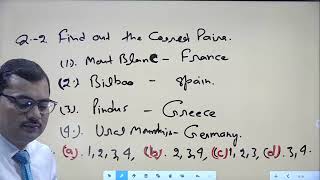 Q.-2 Find out the Correct Pairs.
(1). Mont Blanc - France
(2.) Bilbao - Spain.
(3). Pindus - Greece
(4.) Ural Mountain - Germany.
(a). 1,2,3,4, (b). 2,3,4, (c) 1,2,3, (d). 3,4.